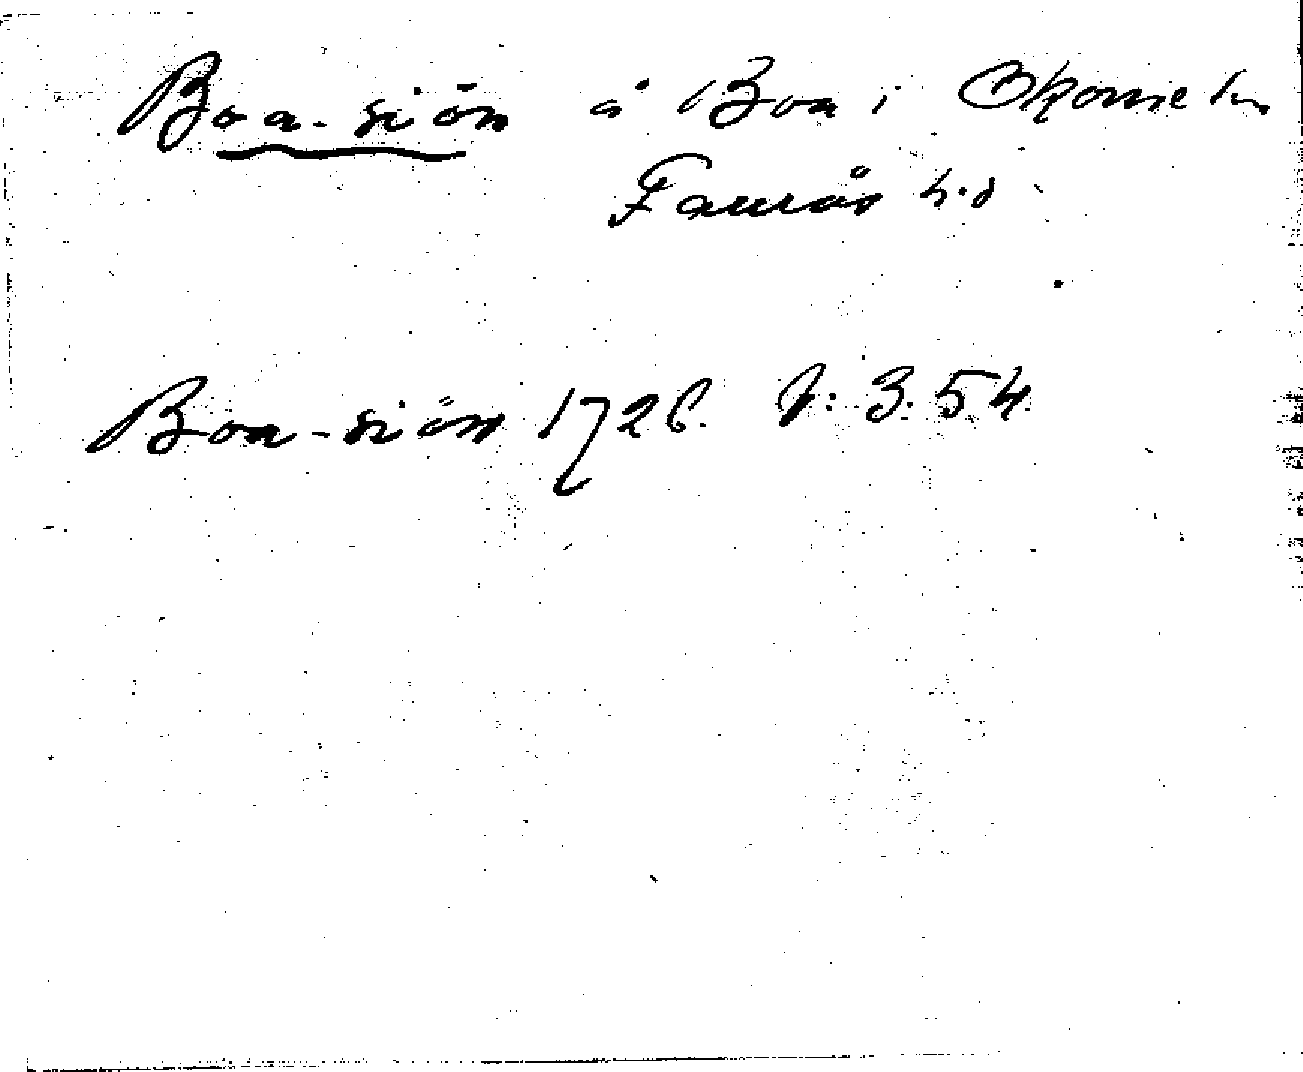 Boa-siön å Boa i Okome sn
Faurås h.d
Boa-siön 1726. J: 3. 54